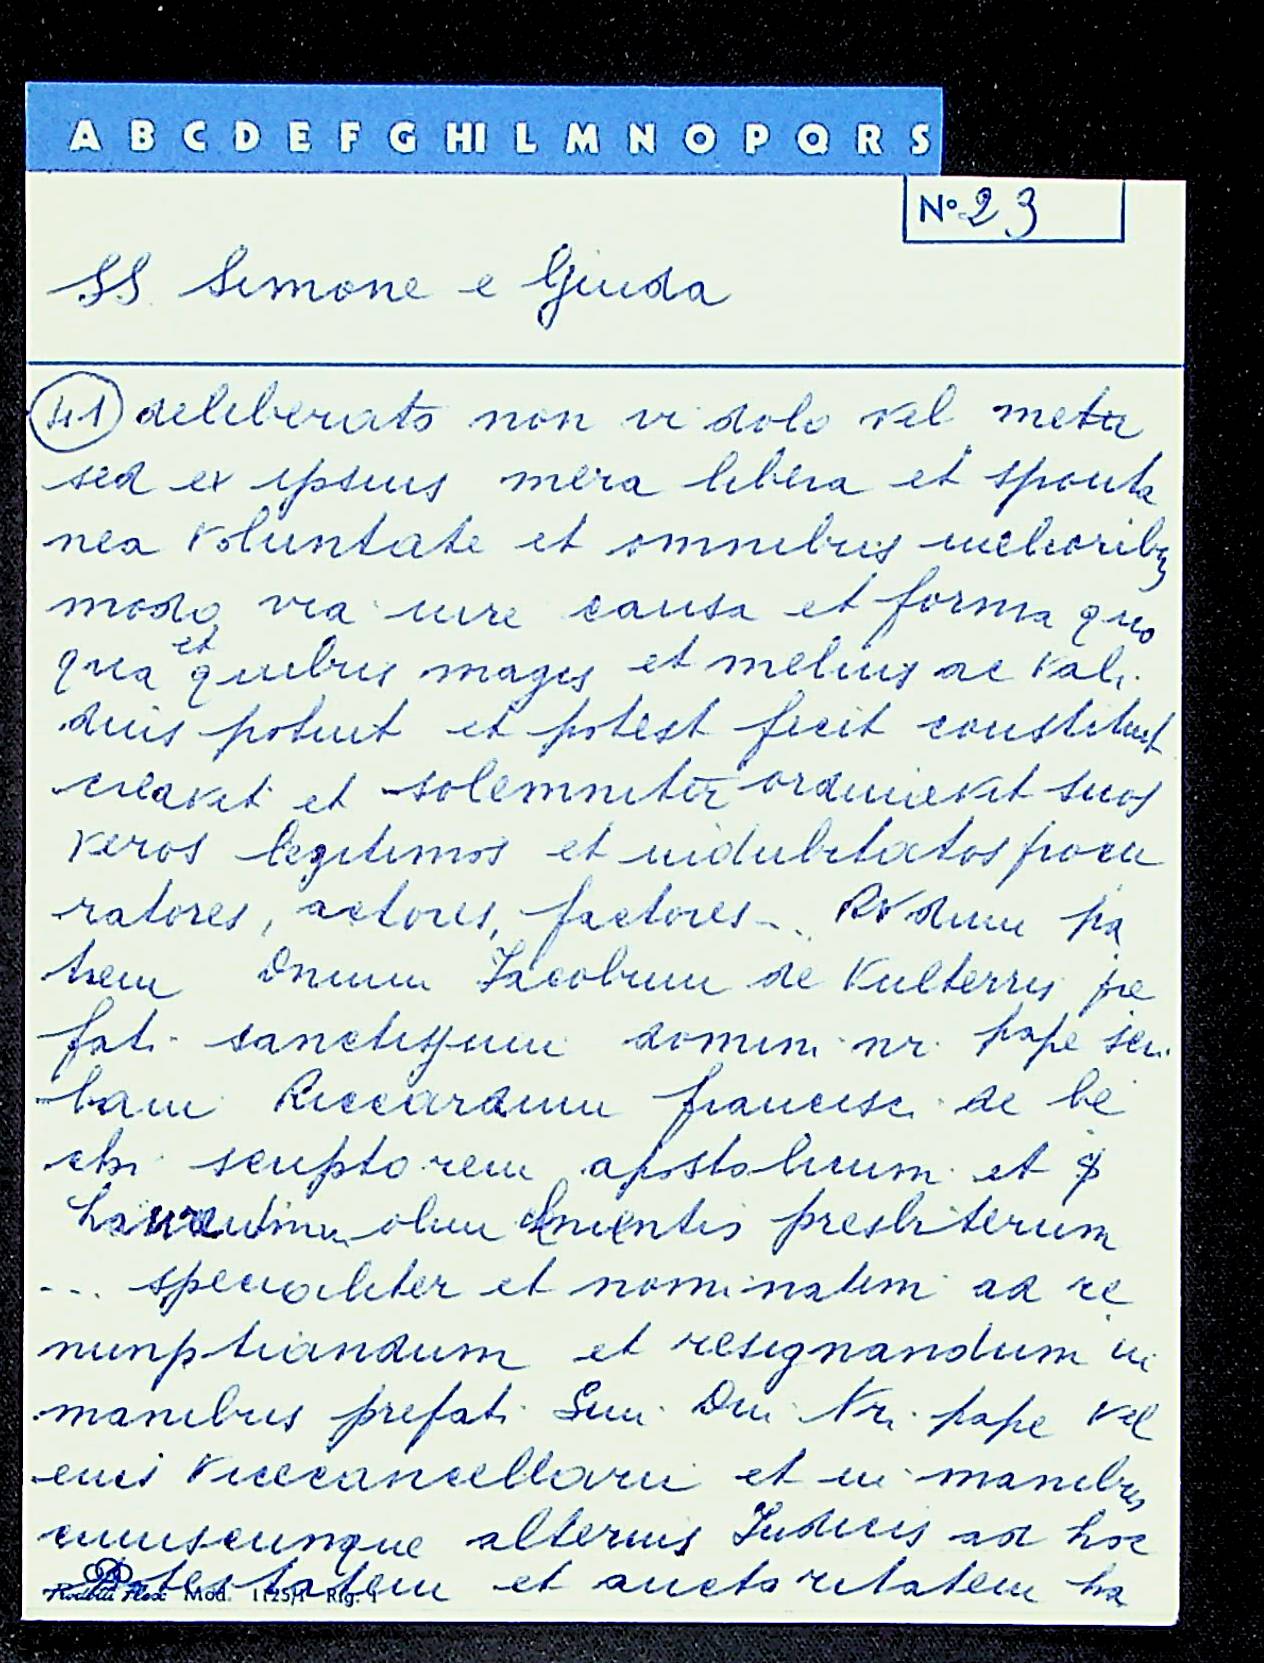 A B C D E F G HI L M N O P Q R S
N° 23
SS. Simone e Giuda
41 deliberato non vi dolo vel metu
sed ex ipsius mera libera et sponta
nea voluntate et omnibus melioribus
modo via iure causa et forma quo
qua et quibus magis et melius ac vali
dius potuit et potest fecit constituit
creavit et solemniter ordinavit suos
veros legitimos et indubitatos procu
ratores, actores, factores... RVdum pa
trem Dnum Jacobum de Vulterris pre
fati sanctissimi domini nr. pape scri
bam Riccardum francisci de be
chi scriptorem apostolicum et
olim presbiterum
... specialiter et nominatim ad re
nunptiandum et resignandum in
manibus prefati Smi Dni Nri pape vel
eius vicecancellarii et in manibus
cuiuscunque alterius Judicis ad hoc
potestatem et auctoritatem ha
Mod. 1125/1 Rig. 1